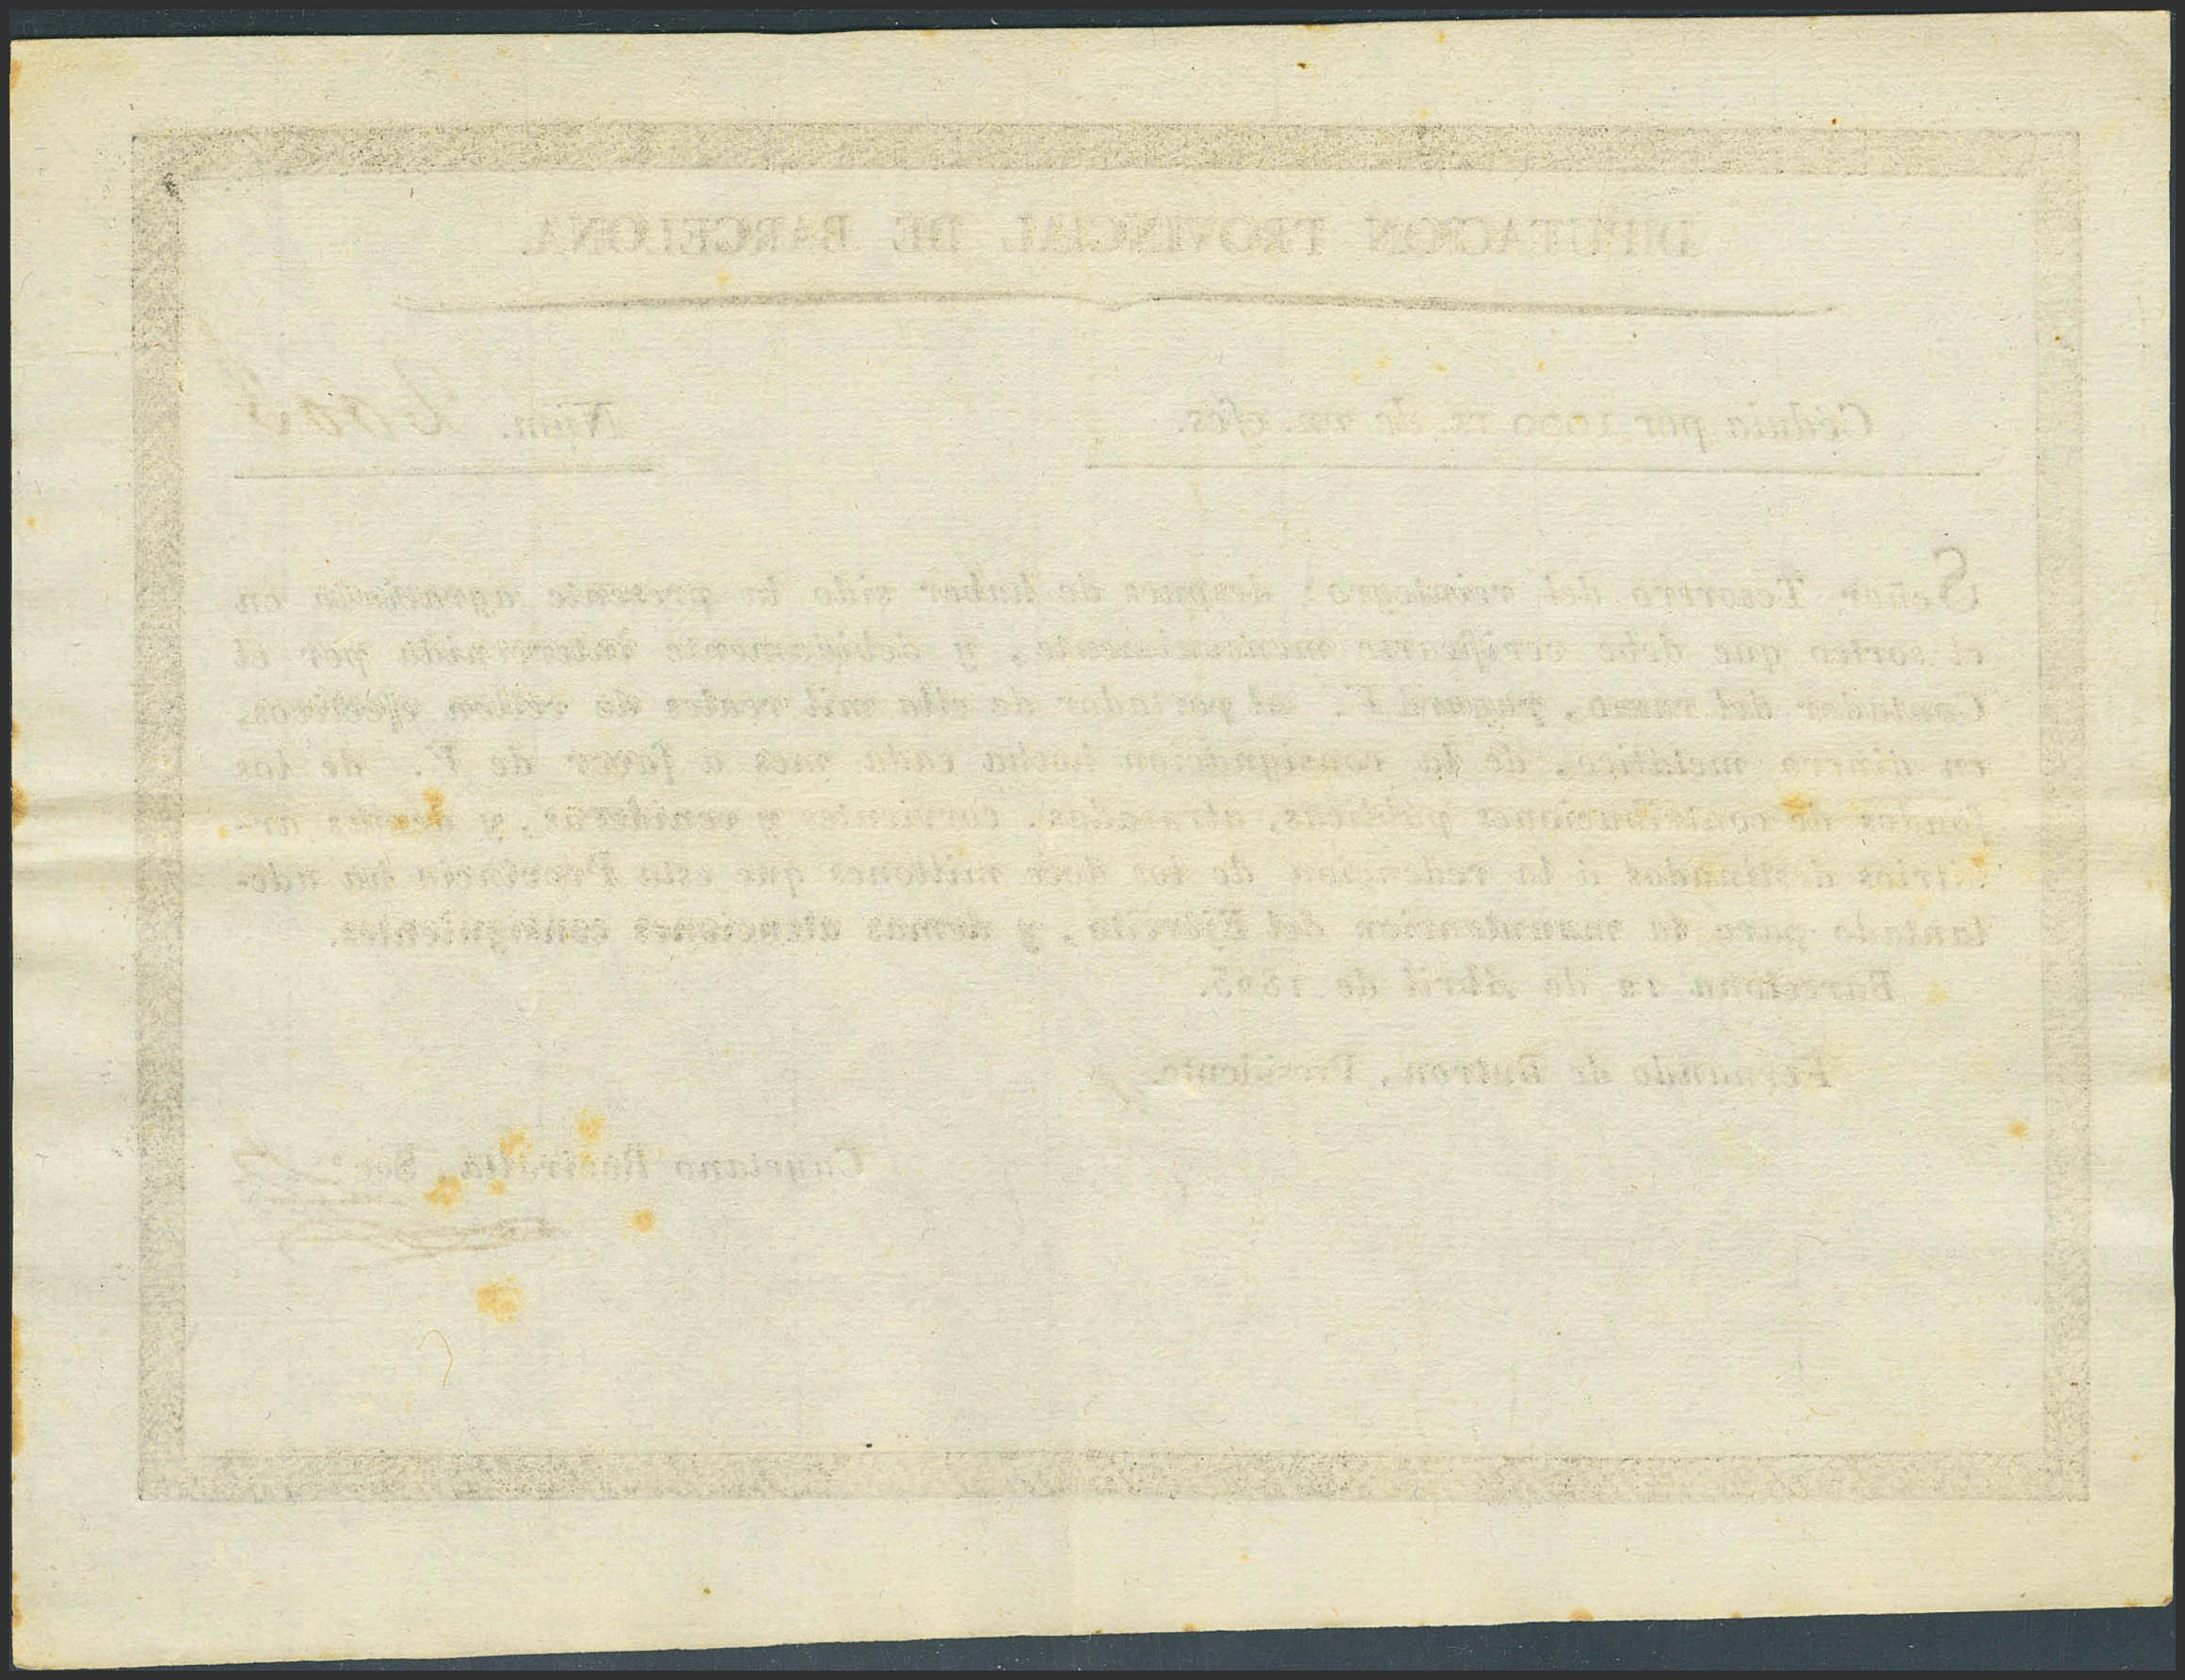 DIPUTACION PROVINCIAL DE BARCELONA.
Cédula por 1000 rs. de vn. efes.
Núm.
Señor Tesorero del reintegro: despues de haber sido la presente agraciada en
el sorteo que debe verificarse mensualmente, y debidamente intervenida por el
Contador del ramo, pagará V. al portador de ella mil reales de vellon efectivos,
en dinero metálico, de la consignacion hecha cada mes á favor de V. de los
fondos de contribuciones públicas, atrasadas, corrientes y venideras, y demas ar-
bitrios destinados á la redencion de los doce millones que esta Provincia ha ade-
lantado para la manutencion del Ejército, y demas atenciones consiguientes.
Barcelona 12 de Abril de 1823.
Fernando de Butron, Presidente.
Cayetano Sec.º